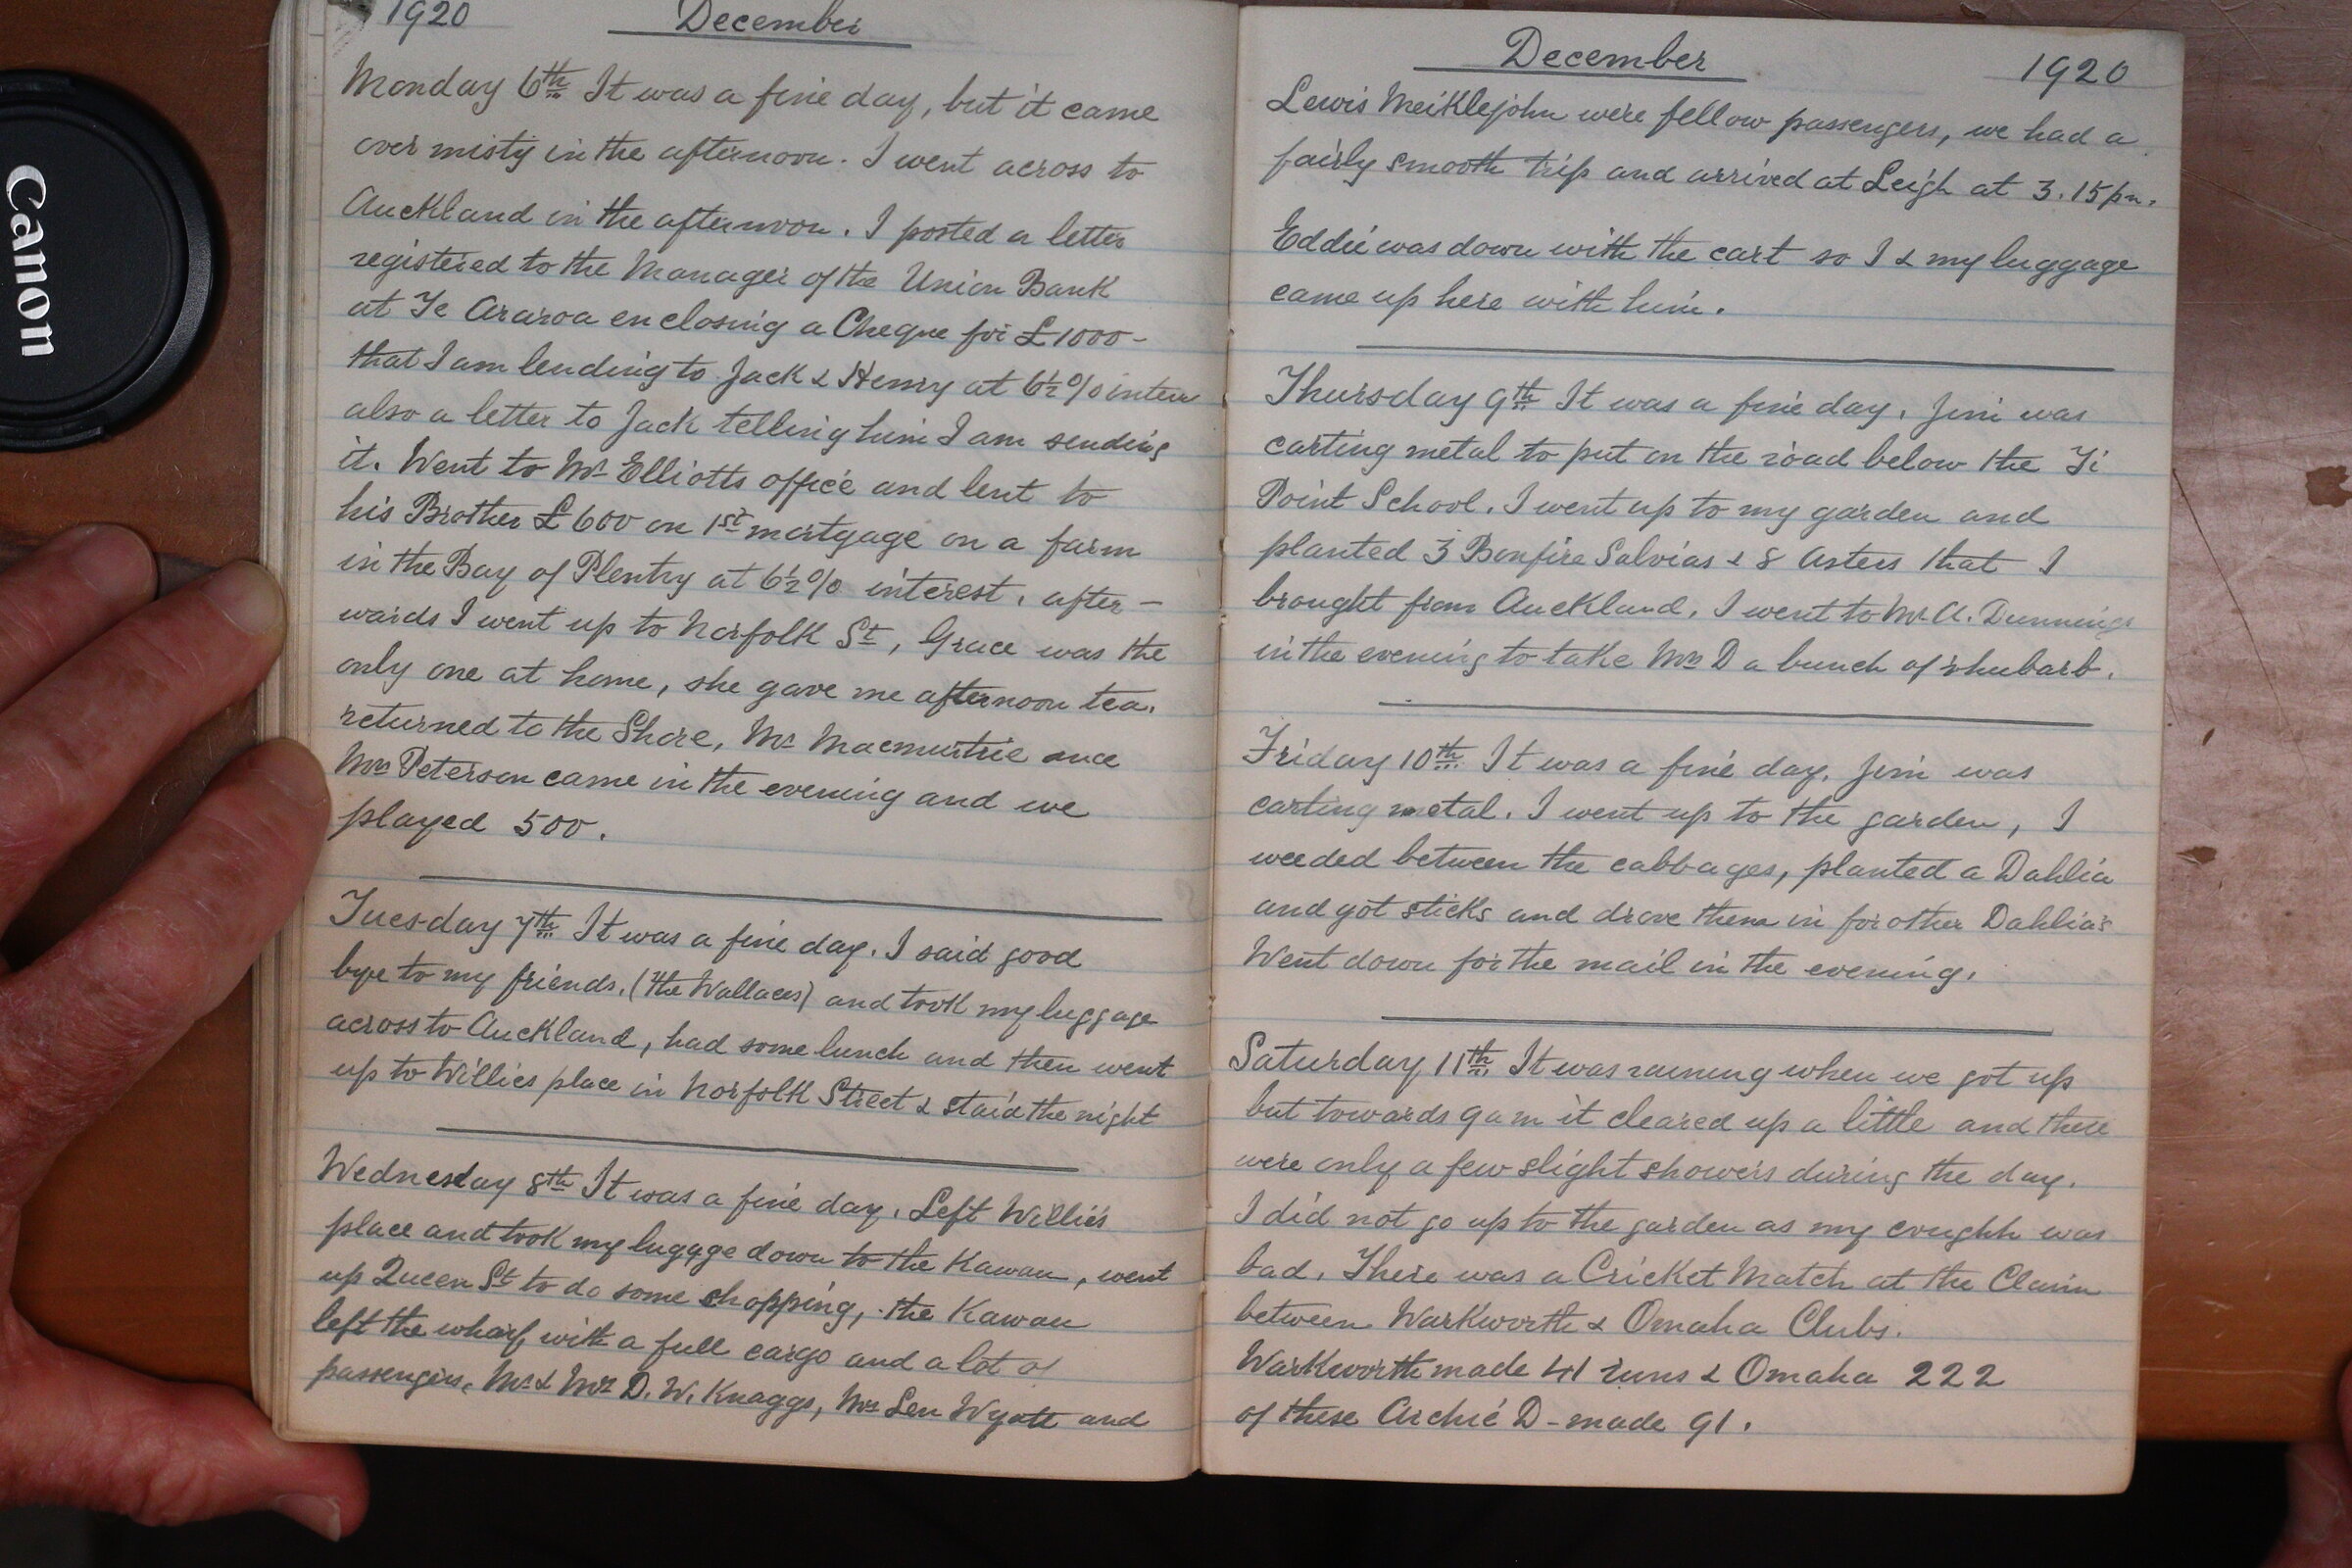 Canon
1920 December
Monday 6th It was a fine day, but it came
over misty in the afternoon. I went across to
Auckland in the afternoon. I posted a letter
registered to the Manager of the Union Bank
at Te Araroa enclosing a Cheque for £1000-
that I am lending to Jack & Henry at 6½%
also a letter to Jack telling him I am sending
it. Went to Mr Elliotts office and lent to
his Brother £600 on 1st mortgage on a farm
in the Bay of Plentry at 6½% interest, after-
wards I went up to Norfolk St, Grace was the
only one at home, she gave me afternoon tea.
returned to the Shore, Mr Macmurtrie and
Mrs Peterson came in the evening and we
played 500.
Tuesday 7th It was a fine day. I said good
bye to my friends. (the Wallaces) and took my luggage
across to Auckland, had some lunch and then went
up to Willies place in Norfolk Street & staid the night
Wednesday 8th It was a fine day. Left Willies
place and took my lugqge down to the Kawau, went
up Queen St to do some shopping, the Kawau
left the wharf with a full cargo and a lot of
passengers. Mr & Mrs D. W. Knaggs, Mrs Len Wyatt and
December 1920
Lewis Meiklejohn were fellow passengers, we had a
fairly smooth trip and arrived at Leigh at 3.15pm.
Eddie was down with the cart so I & my luggage
came up here with him.
Thursday 9th It was a fine day. Jim was
carting metal to put on the road below the Ti
Point School. I went up to my garden and
planted 3 Bonfire Salvias & 8 Asters that I
brought from Auckland. I went to Mr A. Dunnings
in the evening to take Mrs D a bunch of rhubarb.
Friday 10th It was a fine day. Jim was
carting metal. I went up to the garden, I
weeded between the cabbages, planted a Dahlia
and got sticks and drove them in for other Dahlias
Went down for the mail in the evening.
Saturday 11th It was raining when we got up
but towards 9am it cleared up a little and there
were only a few slight showers during the day.
I did not go up to the garden as my coughh was
bad. There was a Cricket Match at the Claim
between Warkworth & Omaha Clubs.
Warkworth made 41 runs & Omaha 222
of these Archie D- made 91.